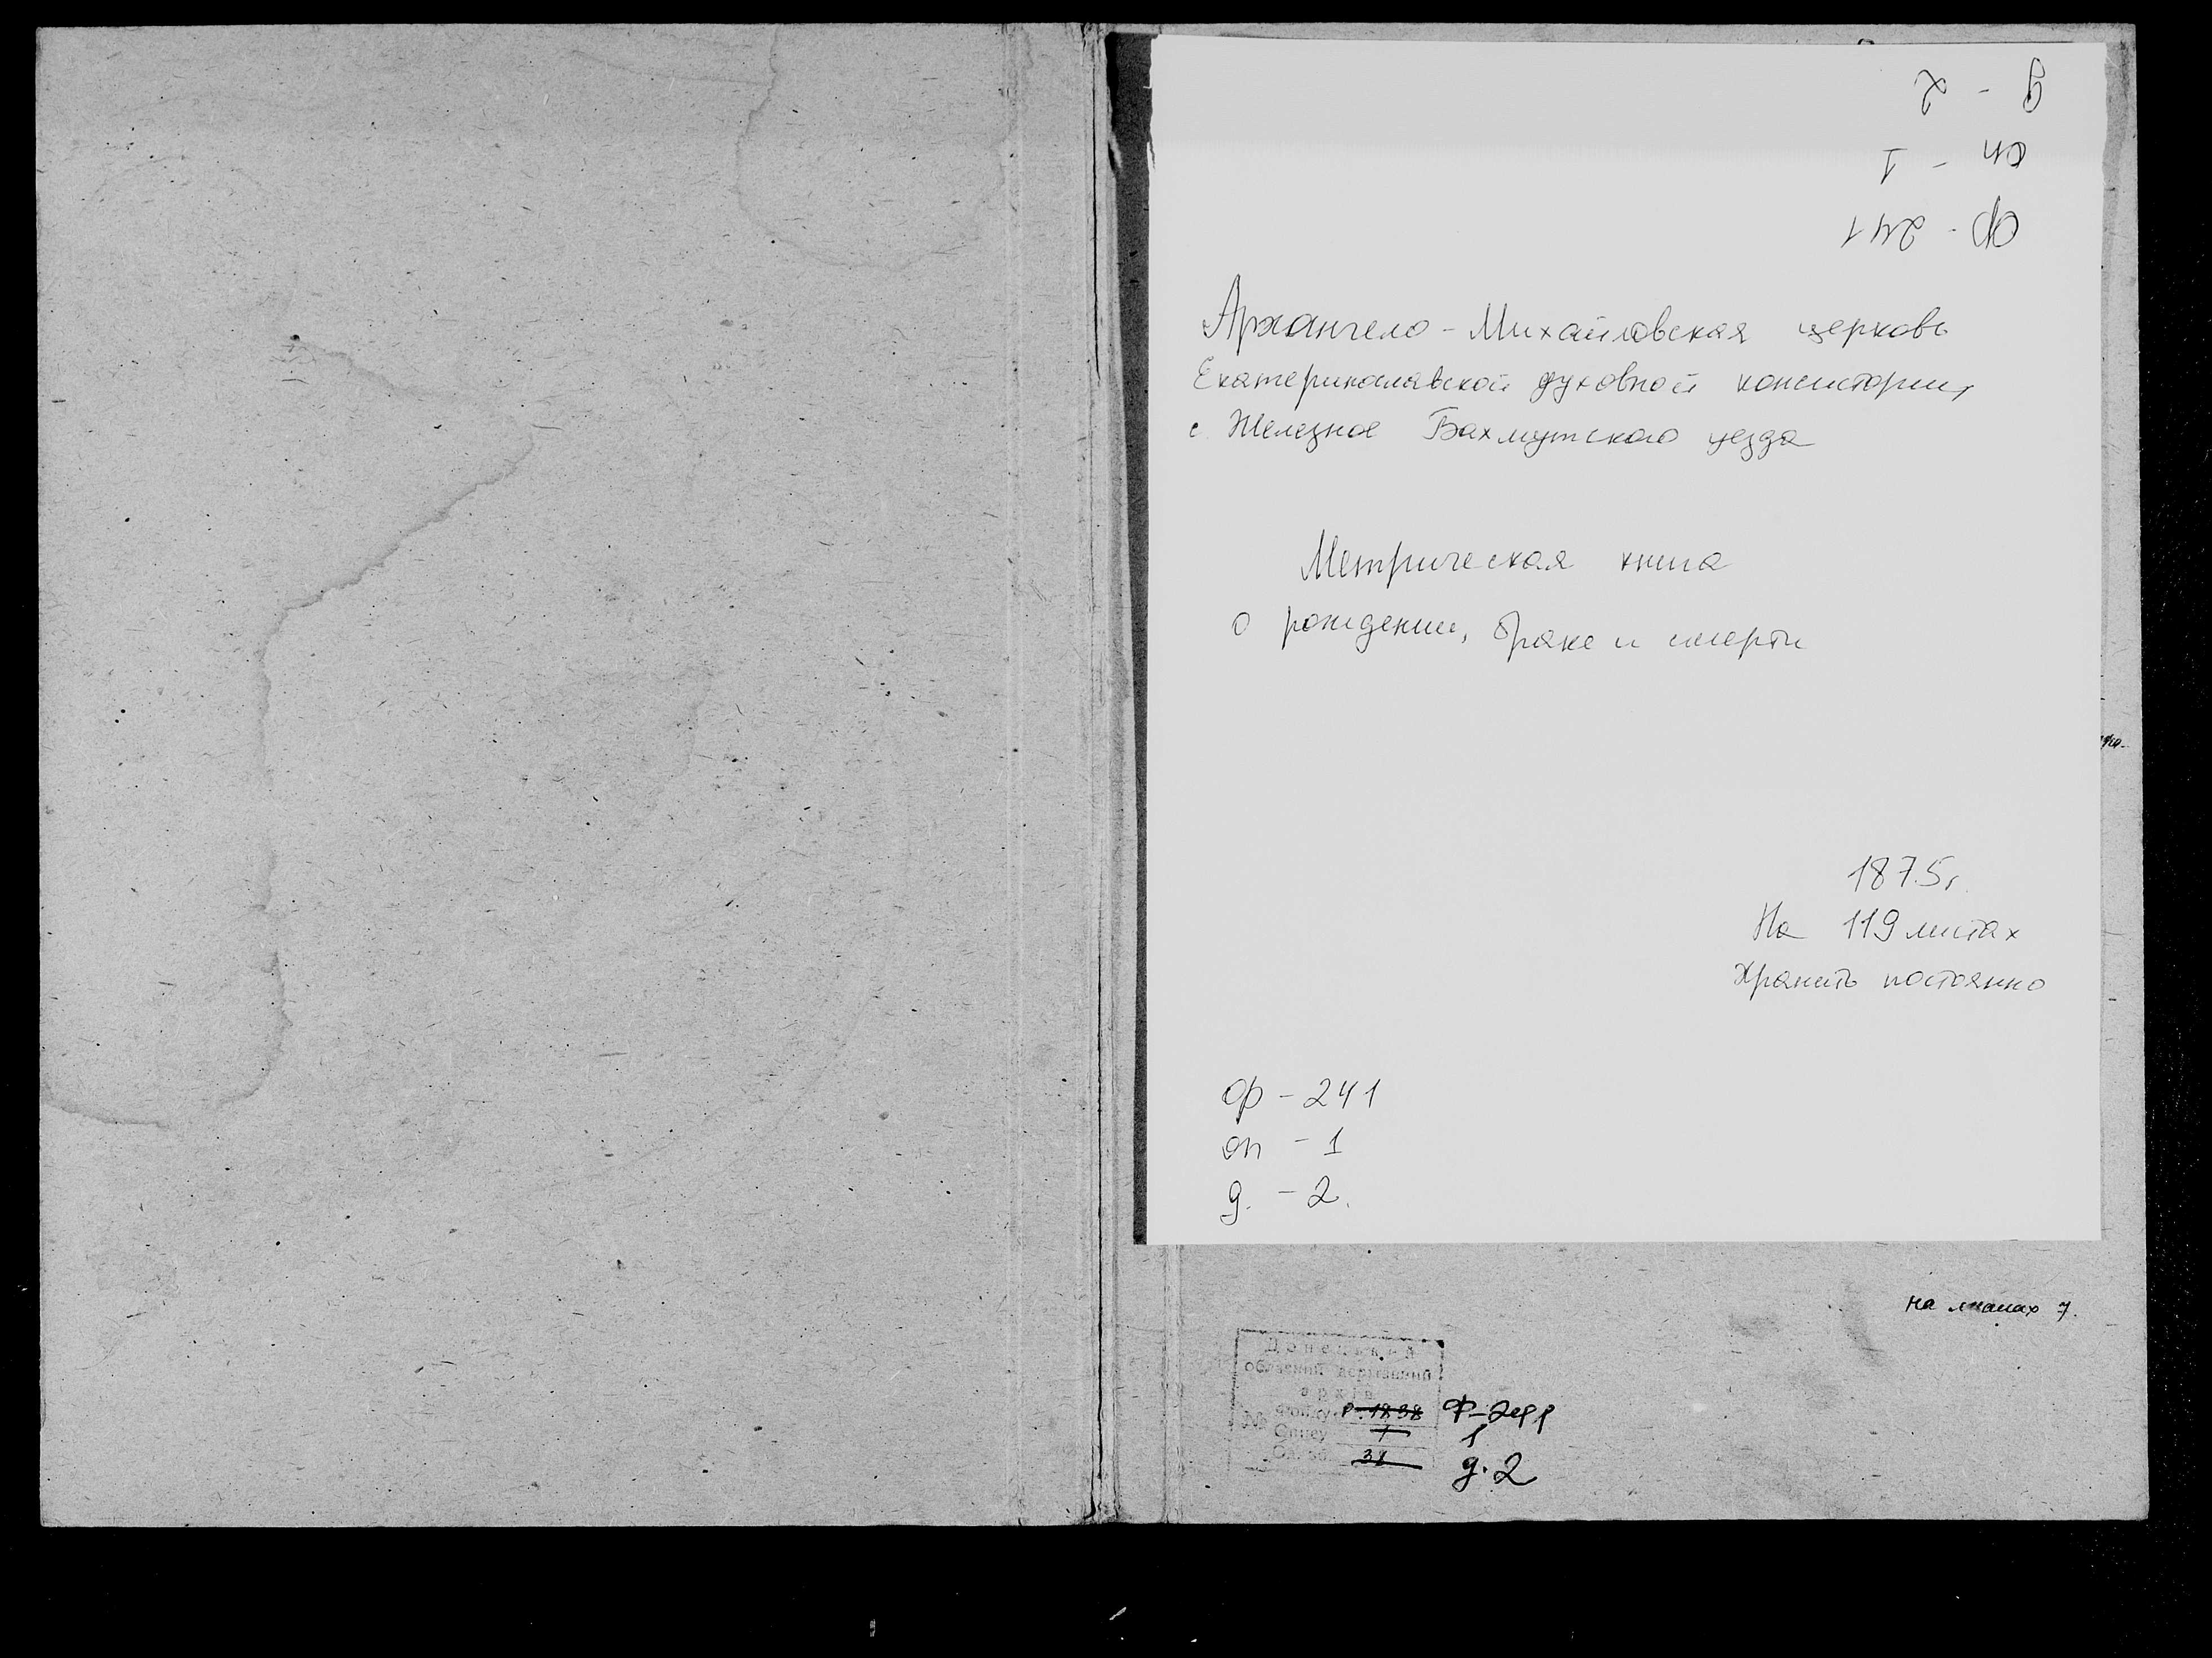 Ф - 241
оп - 1
д - 2
Архангело-Михайловская церковь
Екатеринославской духовной консистории,
с. Железное Бахмутского уезда
Метрическая книга
о рождении, браке и смерти
1875г.
На 119 листах
Хранить постоянно
ф - 241
оп - 1
д. - 2.
на листах 7.
Донецький
обласний державний
архів
№ фонду Р-1838 Ф-241
Опису 7 1
Од. зб. 38 д. 2